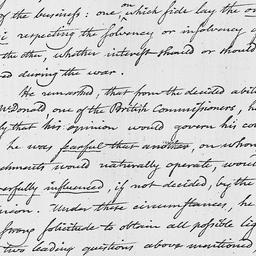 of the business: one on which side lay the
respecting the solvency or insolvency
the other, whether interest should or should
ed during the war.
He remarked, that from the decided abil
McDonald one of the British Commissioners, he
ly that his opinion would govern his co
he was fearful that another, on whom
chments would naturally operate, would
erfully influenced, if not decided, by the
nion. Under these circumstances, he
strong solicitude to obtain all possible lig
two leading questions above mentioned